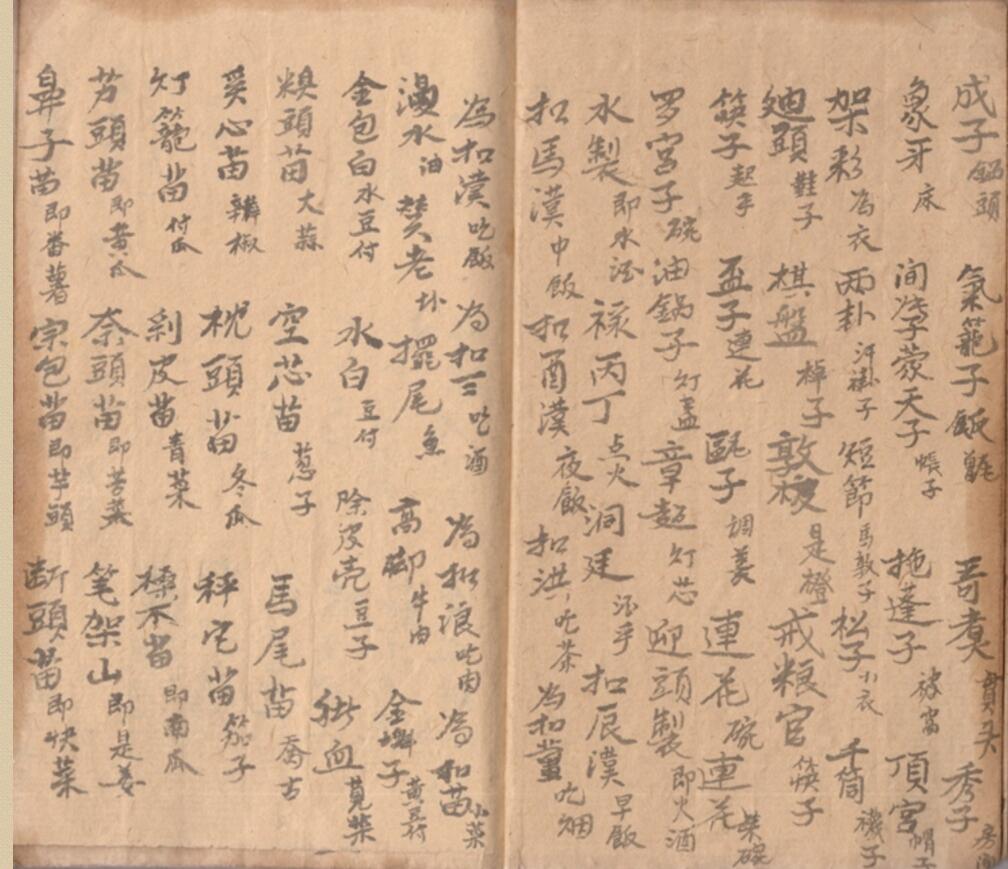 成子 鍋頭 氣籠子 飯甑 哥煑 賣头 秀子 房
象牙 床 洞字蒙天子 帳子 拖蓬子 被窩 頂宮 帽子
架彩 為衣 两卦 汗褂子 短節 馬敦子 松子 小衣 千筒 襪子
廸頭 鞋子 棋盤 棹子 敦梭 是櫈 戒粮官 筷子
筷子 起手 盃子 連花 甌子 調羹 連花 碗 連花 柴碗
罗宮子 碗 油鍋子 灯盞 章起 灯芯 迎頭製 即火酒
水製 即水酒 禄丙丁 点火 洞廷 洒手 扣辰漢 早飯
扣馬漢 中飯 扣酉漢 夜飯 扣洪 吃茶 為扣薰 吃烟
為扣漢 吃飯 為扣三 吃酒 為扣浪 吃肉 為扣苗 小菜
漫水 油 焚老 卦 擺尾 魚 高脚 牛肉 金墩子 黄豆付
金包白 水豆付 水白 豆付 除皮壳 豆子 血 莧菜
糗頭苗 大蒜 空芯苗 葱子 馬尾苗 喬古
奚心苗 辣椒 枕頭苗 冬瓜 秤它苗 茄子
灯籠苗 付瓜 剥皮苗 青菜 檺不苗 即南瓜
芳頭苗 即黄瓜 奈頭苗 即苦菜 笔架山 即是姜
鼻子苗 即番薯 宗包苗 即芋頭 断頭苗 即快菜